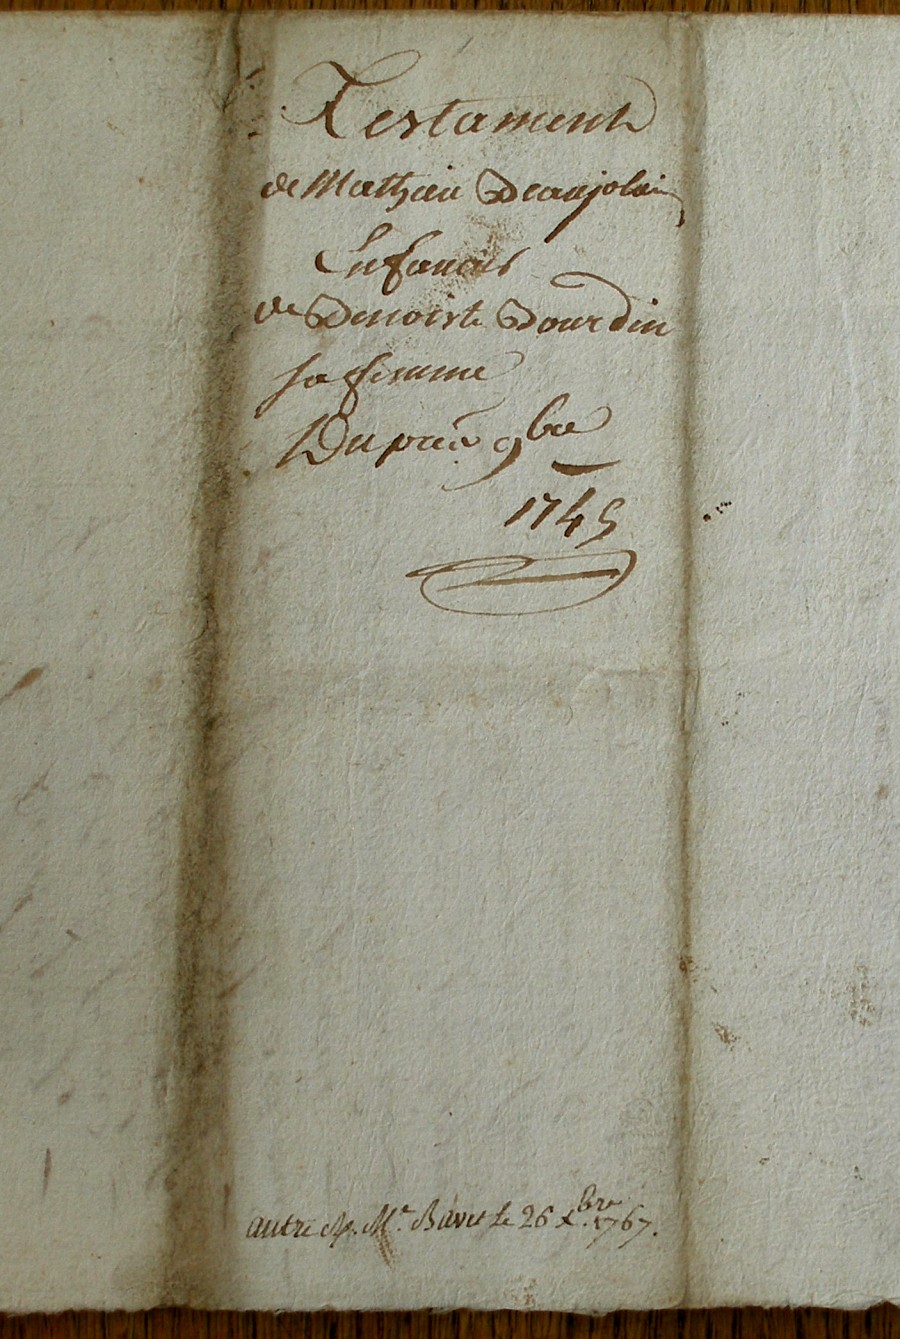 Testament
de Mathieu Beaujolin
En faveur
de Benoiste Bourdin
sa femme
Du prē 9bre
1745
autre Rp. Me. Bavet le 26 xbre. 1767.